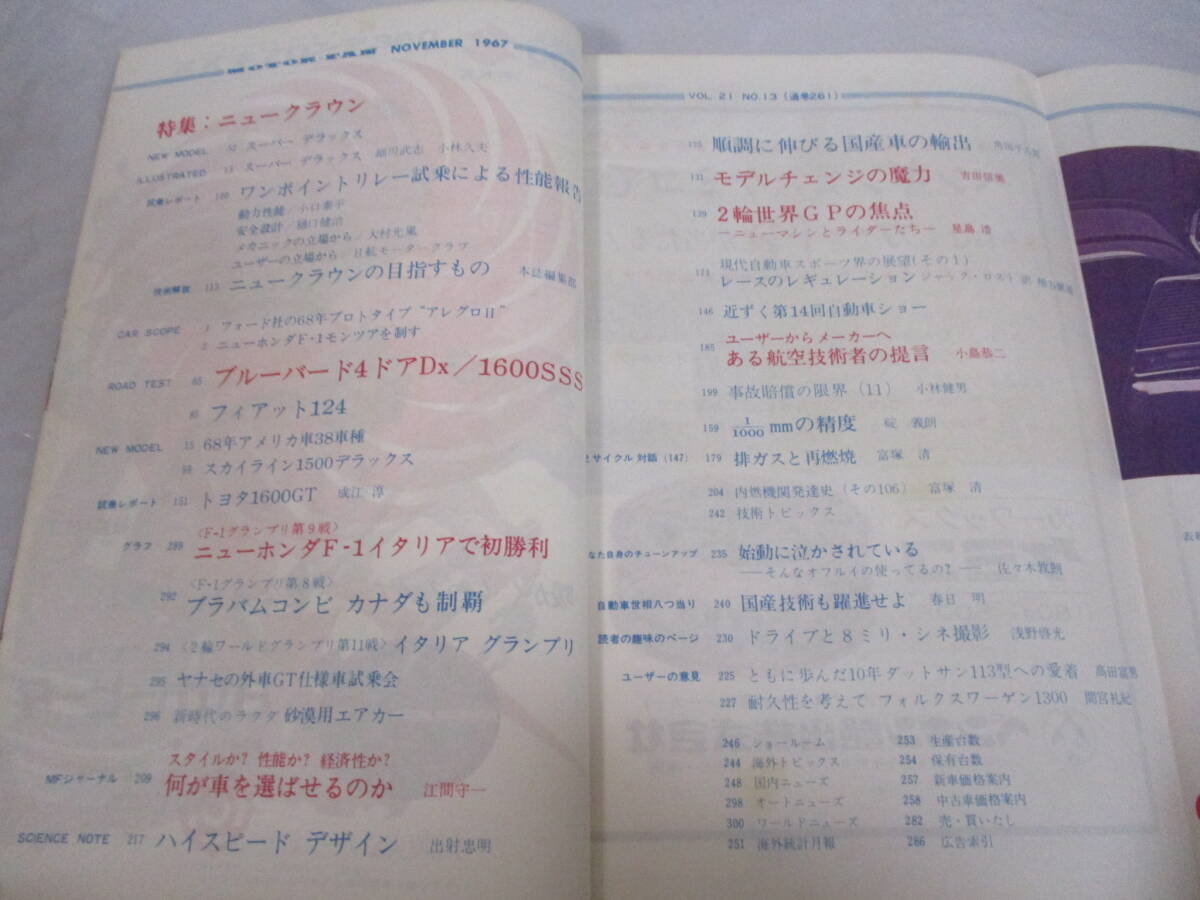 MOTOR FAN NOVEMBER 1967
特集：ニュークラウン
NEW MODEL 52 スーパー デラックス
ILLUSTRATED 11 スーパー デラックス 細川武志 小林久夫
試乗レポート 100 ワンポイントリレー試乗による性能報告
動力性能／小口泰平
安全設計／樋口健治
メカニックの立場から／大村光風
ユーザーの立場から／日航モータークラブ
技術解説 113 ニュークラウンの目指すもの 本誌編集部
CAR SCOPE 1 フォード社の68年プロトタイプ“アレグロII”
2 ニューホンダF-1モンツアを制す
ROAD TEST 65 ブルーバード4ドアDx／1600SSS
フィアット124
NEW MODEL 15 68年アメリカ車38車種
スカイライン1500デラックス
試乗レポート 151 トヨタ1600GT 成江 淳
〈F-1グランプリ第9戦〉
グラフ 289 ニューホンダF-1イタリアで初勝利
〈F-1グランプリ第8戦〉
292 ブラバムコンビ カナダも制覇
294 〈2輪ワールドグランプリ第11戦〉イタリア グランプリ
295 ヤナセの外車GT仕様車試乗会
296 新時代のラクダ 砂漠用エアカー
スタイルか？ 性能か？ 経済性か？
MFジャーナル 209 何が車を選ばせるのか 江間守一
SCIENCE NOTE 217 ハイスピード デザイン 出射忠明
VOL. 21 NO.13 (通巻261)
順調に伸びる国産車の輸出
131 モデルチェンジの魔力
139 2輪世界GPの焦点
―ニューマシンとライダーたち― 星島 浩
現代自動車スポーツ界の展望(その1)
171 レースのレギュレーション ジャック・ロスト 訳
146 近ずく第14回自動車ショー
ユーザーからメーカーへ
185 ある航空技術者の提言 小島恭二
199 事故賠償の限界 (11) 小林健男
159 1/1000 mmの精度 碇 義朗
2サイクル対話 (147) 179 排ガスと再燃焼 富塚 清
204 内燃機関発達史 (その106) 富塚 清
242 技術トピックス
なた自身のチューンアップ 235 始動に泣かされている
―そんなオフルイの使ってるの？― 佐々木敦朗
自動車世相八つ当り 240 国産技術も躍進せよ 春日 明
読者の趣味のページ 230 ドライブと8ミリ・シネ撮影 浅野啓光
ユーザーの意見 225 ともに歩んだ10年ダットサン113型への愛着 高田富男
227 耐久性を考えて フォルクスワーゲン1300 間宮礼紀
246 ショールーム 253 生産台数
244 海外トピックス 254 保有台数
248 国内ニューズ 257 新車価格案内
298 オートニューズ 258 中古車価格案内
300 ワールドニューズ 282 売・買いたし
251 海外統計月報 286 広告索引